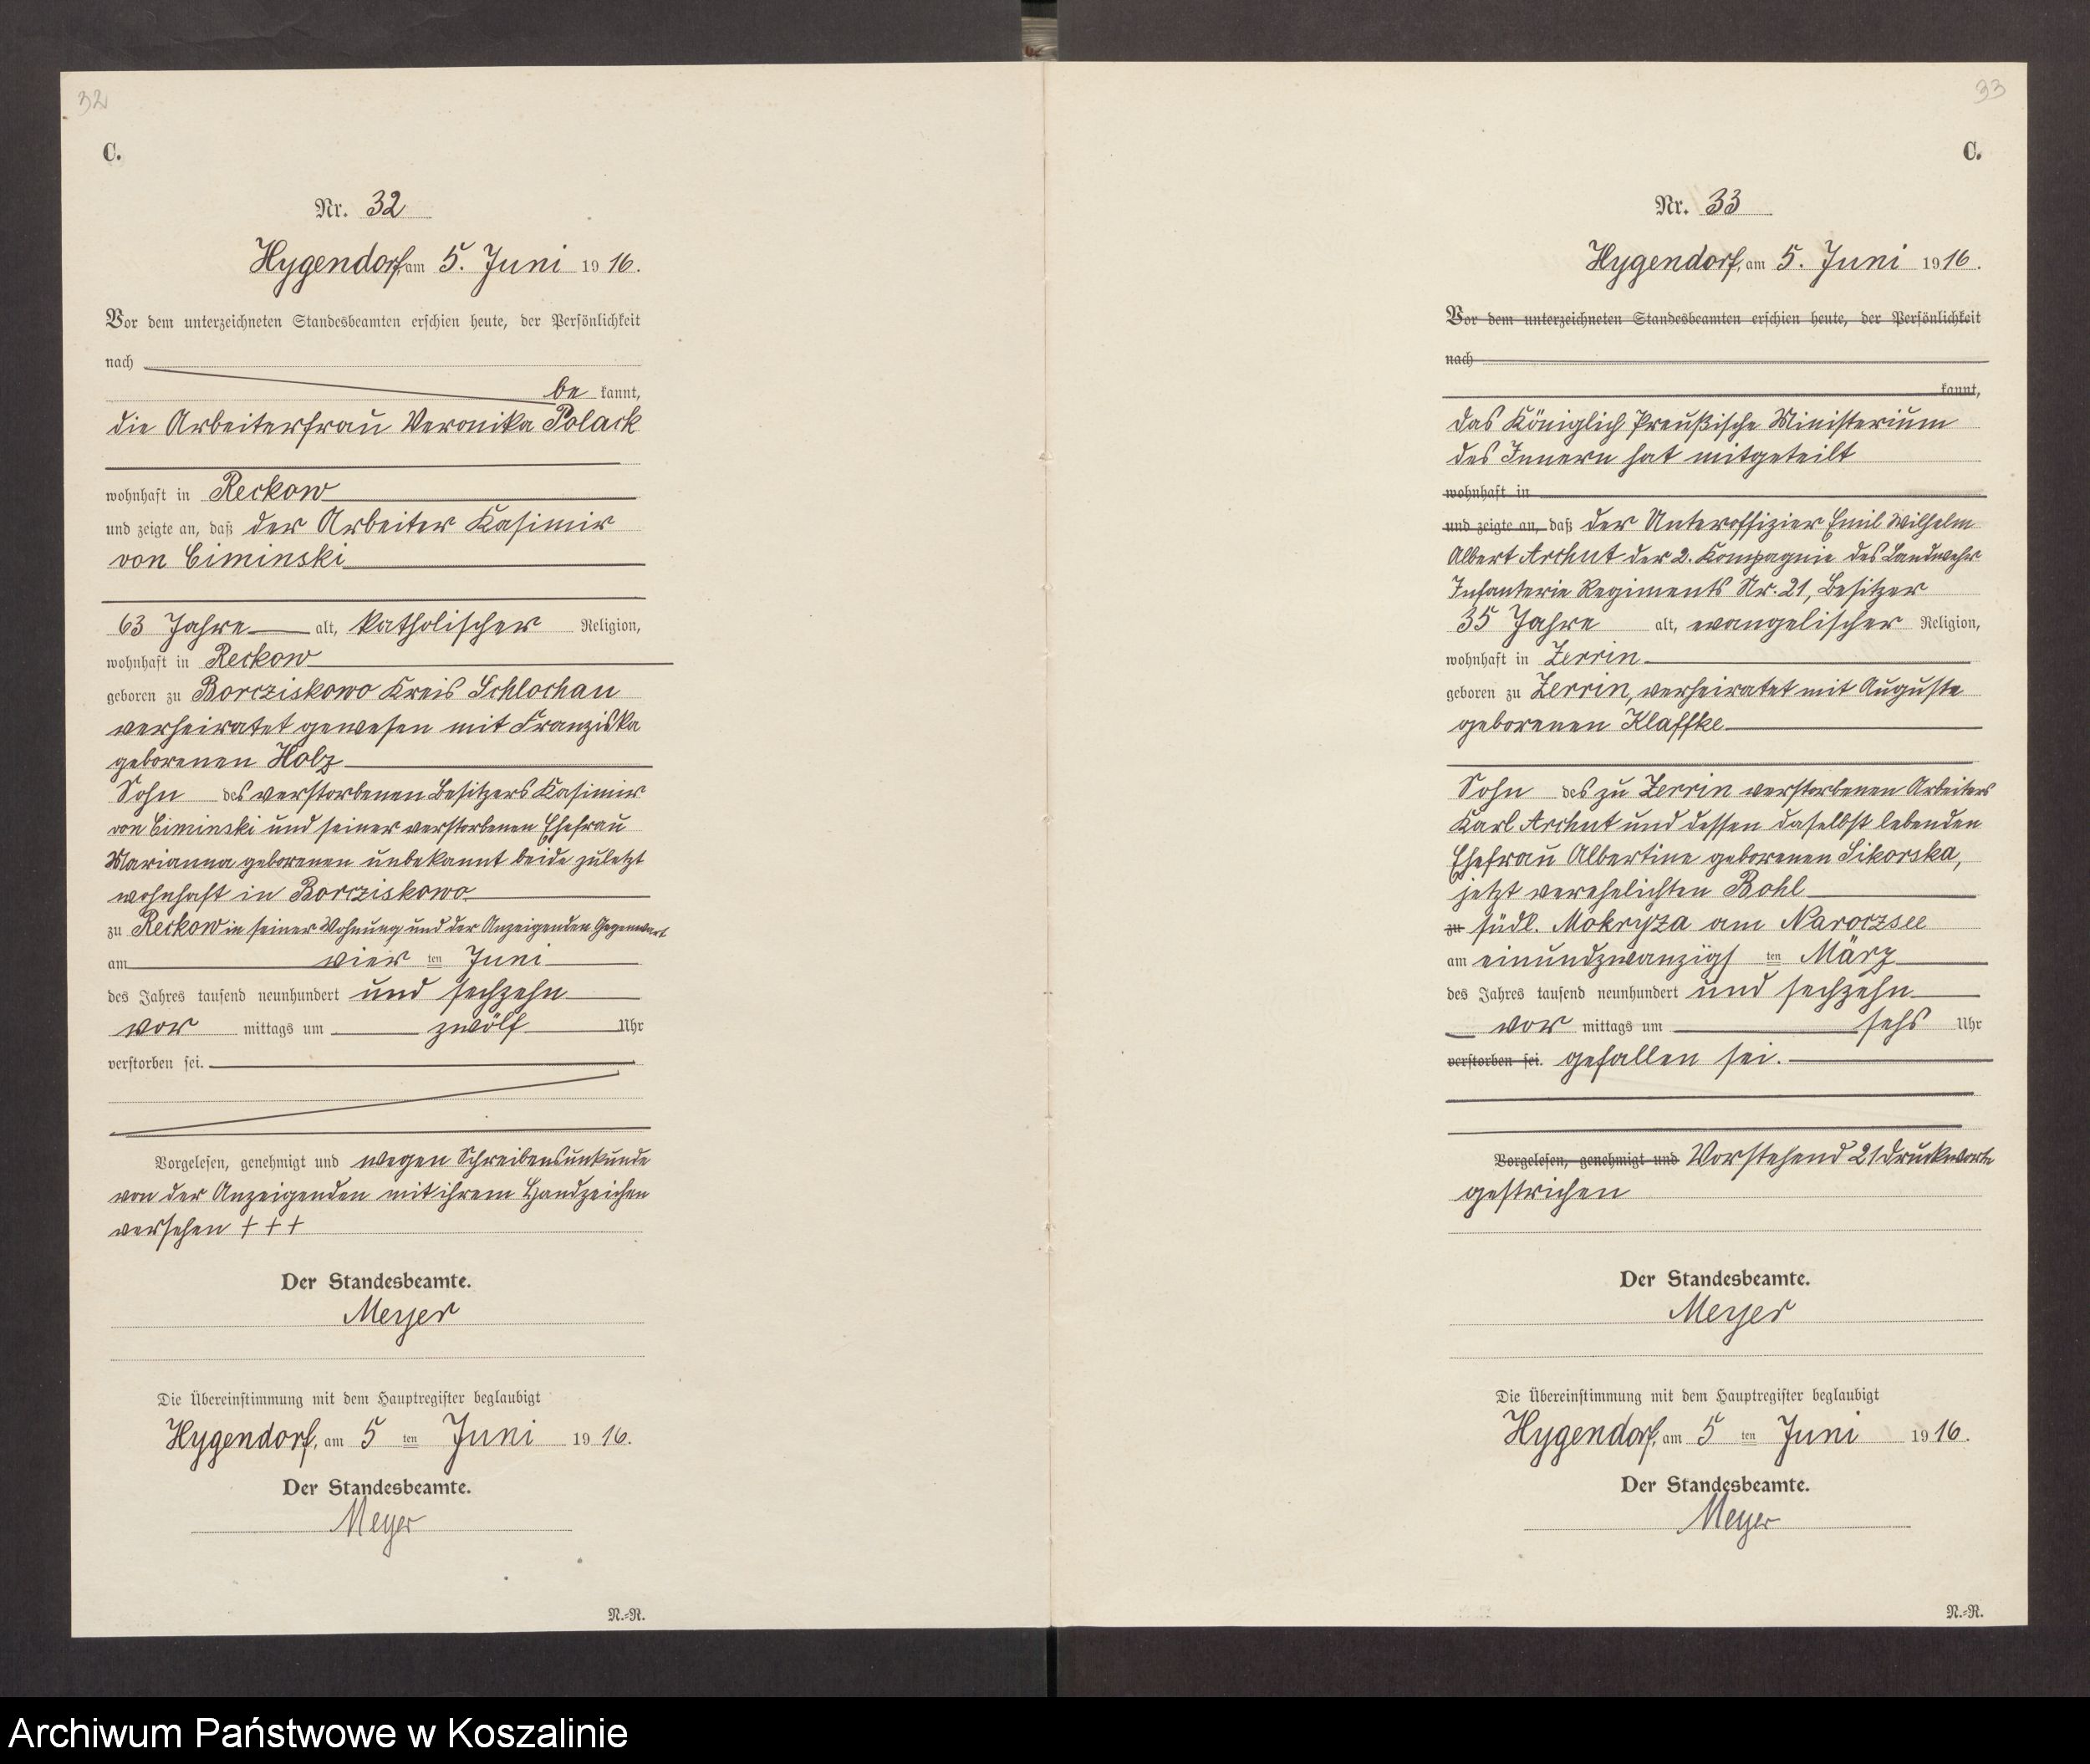 32
C.
Nr. 32
Hygendorf am 5. Juni 1916.
Vor dem unterzeichneten Standesbeamten erschien heute, der Persönlichkeit
nach
be kannt,
die Arbeiterfrau Veronika Polack
wohnhaft in Reckow
und zeigte an, daß der Arbeiter Kasimir
von Ciminski
63 Jahre alt, katholischer Religion,
wohnhaft in Reckow
geboren zu Borcziskowo Kreis Schlochau
verheiratet gewesen mit Franziska
geborenen Holz
Sohn des verstorbenen Besitzers Kasimir
von Ciminski und seiner verstorbenen Ehefrau
Marianna geborenen unbekannt beide zuletzt
wohnhaft in Borcziskowo
zu Reckow in seiner Wohnung und der Anzeigenden Gegenwart
am vier ten Juni
des Jahres tausend neunhundert und sechzehn
vor mittags um zwölf Uhr
verstorben sei.
Vorgelesen, genehmigt und wegen Schreibensunkunde
von der Anzeigenden mit ihrem Handzeichen
versehen + + +
Der Standesbeamte.
Meyer
Die Übereinstimmung mit dem Hauptregister beglaubigt
Hygendorf, am 5 ten Juni 1916.
Der Standesbeamte.
Meyer
N.=R.
33
C.
Nr. 33
Hygendorf, am 5. Juni 1916.
Vor dem unterzeichneten Standesbeamten erschien heute, der Persönlichkeit
nach
kannt,
das Königlich Preußische Ministerium
des Innern hat mitgeteilt
wohnhaft in
und zeigte an, daß der Unteroffizier Emil Wilhelm
Albert Archut der 2. Kompagnie des Landwehr
Infanterie Regiments Nr. 21, Besitzer
35 Jahre alt, evangelischer Religion,
wohnhaft in Zerrin
geboren zu Zerrin, verheiratet mit Auguste
geborenen Klaffke
Sohn des zu Zerrin verstorbenen Arbeiters
Karl Archut und dessen daselbst lebenden
Ehefrau Albertine geborenen Sikorska,
jetzt verehelichten Bohl
zu südl. Mokryza am Naroczsee
am einundzwanzigs ten März
des Jahres tausend neunhundert und sechzehn
vor mittags um sechs Uhr
verstorben sei. gefallen sei.
Vorgelesen, genehmigt und Vorstehend 21 Druckworte
gestrichen
Der Standesbeamte.
Meyer
Die Übereinstimmung mit dem Hauptregister beglaubigt
Hygendorf, am 5 ten Juni 1916.
Der Standesbeamte.
Meyer
N.=R.
Archiwum Państwowe w Koszalinie